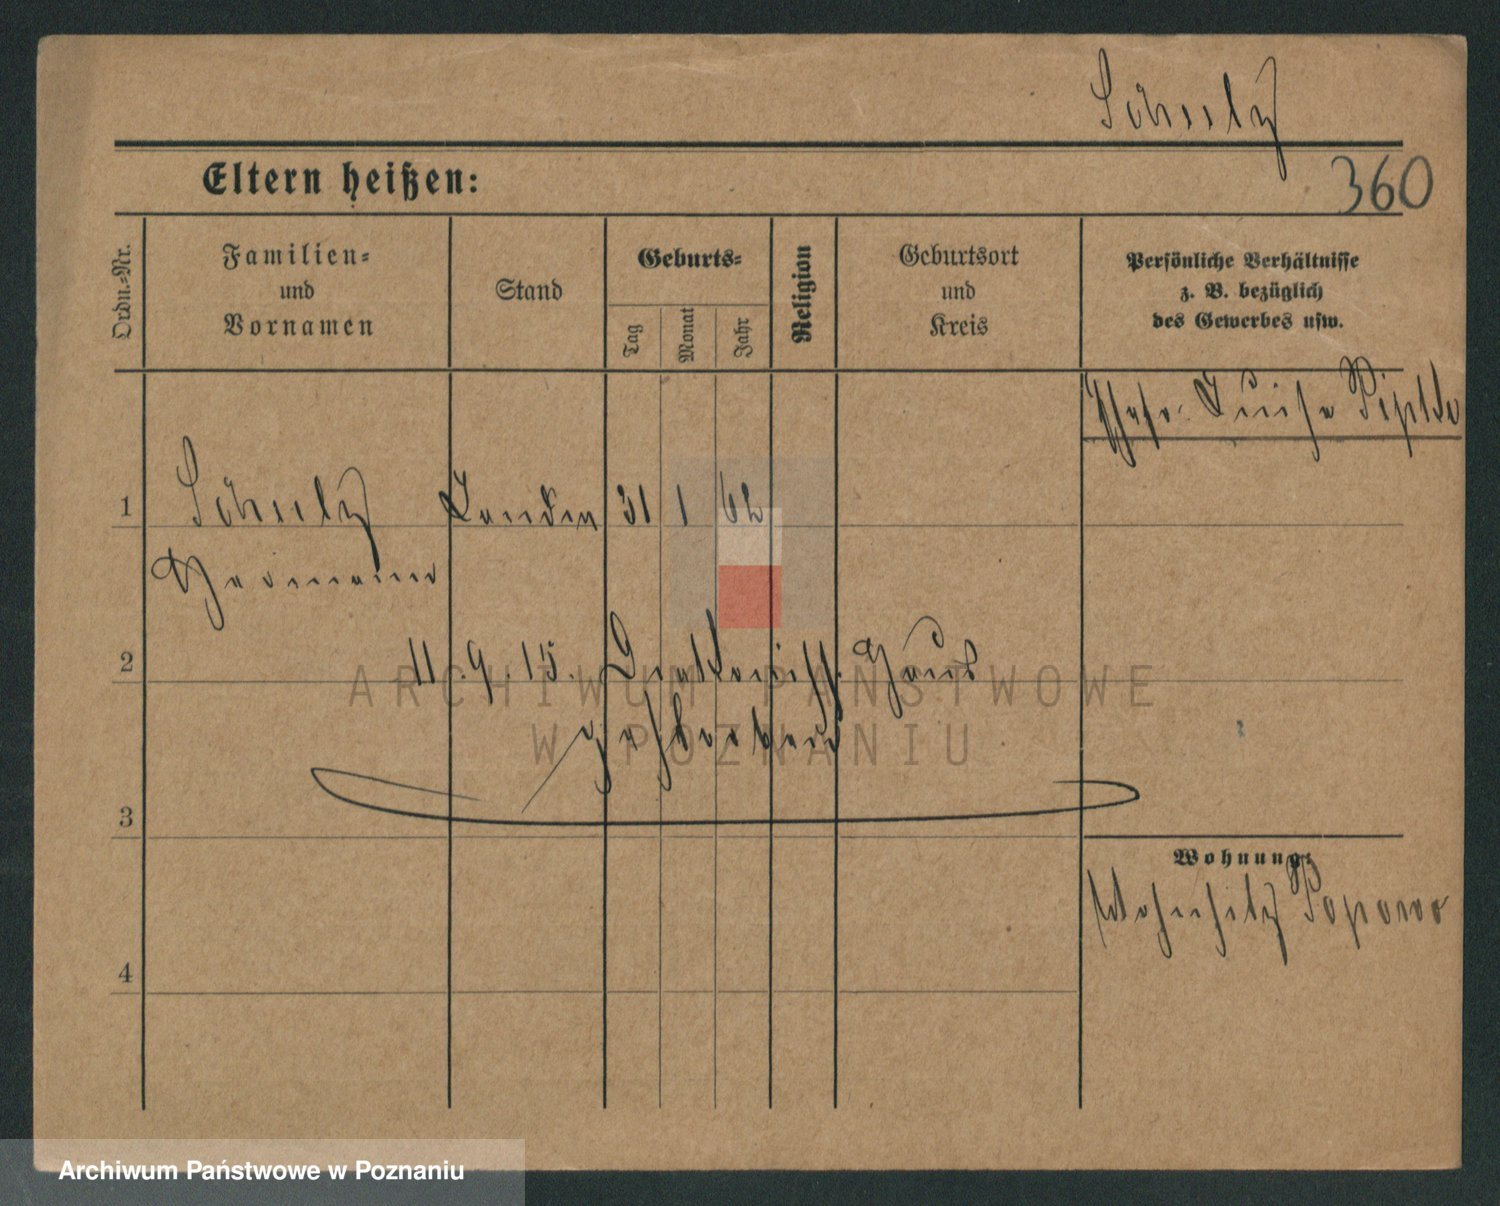 Schultz
360
Eltern heißen:
Ordn.-Nr.
Familien-
und
Vornamen
Stand
Geburts-
Tag
Monat
Jahr
Religion
Geburtsort
und
Kreis
Persönliche Verhältnisse
z. B. bezüglich
des Gewerbes usw.
Luise
1
Schultz
31 1 62
Hermann
2
11. 9. 15. Haus
ARCHIWUM PAŃSTWOWE
W POZNANIU
gestorben
3
Wohnung:
Wohnsitz Popowo
4
Archiwum Państwowe w Poznaniu